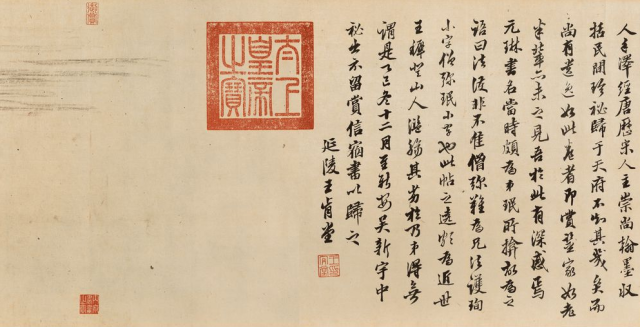 人手澤經唐歷宋人主崇尚翰墨収
括民間珍秘歸于天府不知其幾矣而
尚有遺逸如此卷者即賞鑒家如老
米輩亦未之見吾於此有深感焉
元琳書名當時頗為弟珉所揜故為之
語曰法護非不佳僧彌難為兄法護珣
小字僧彌珉小字也此帖之遒為近世
王穉登山人濫觴其劣於乃弟得無
謂是冬十二月至新安吳新宇中
秘出示留賞信宿書以歸之
延陵王肯堂
太上皇帝之寶